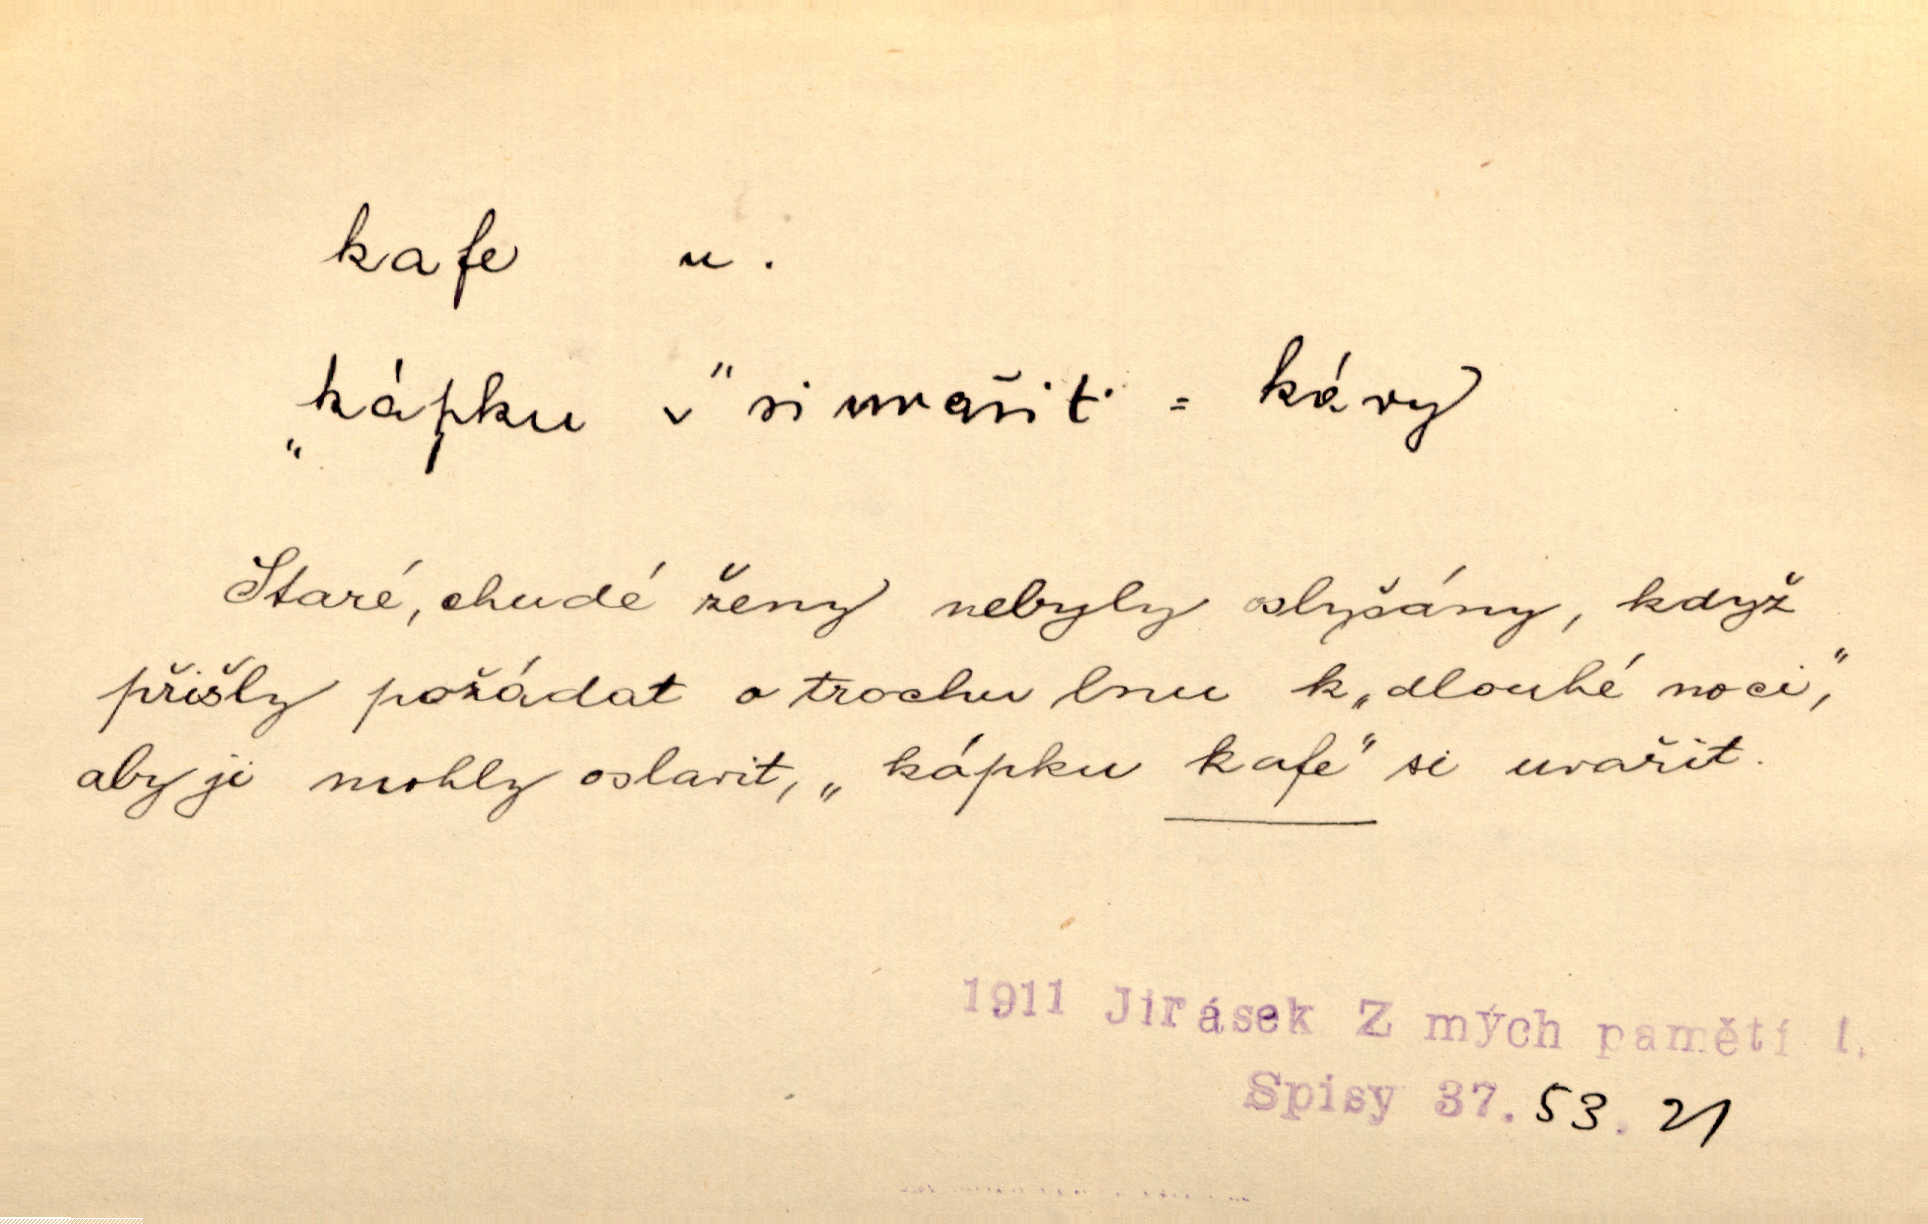 kafe n.
„kápku v" si uvařit = kávy
Staré, chudé ženy nebyly oslyšány, když
přišly požádat o trochu lnu k „dlouhé noci",
aby ji mohly oslavit, „kápku kafe" si uvařit.
1911 Jirásek Z mých pamětí I.
Spisy 37. 53. 21